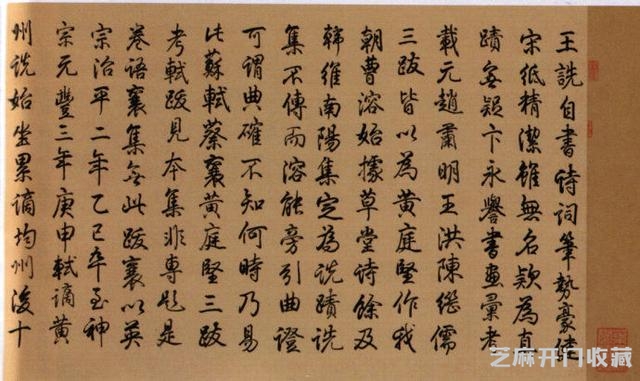 王詵自書诗詞筆勢豪健
宋紙精潔雖無名欵為真
蹟無疑卞永譽書畫彙考
載元趙肅明王洪陳繼儒
三跋皆以為黃庭堅作我
朝曹溶始據草堂诗餘及
韓維南陽集定為詵蹟詵
集不傳而溶能旁引曲證
可謂典確不知何時乃易
以蘇軾蔡襄黃庭堅三跋
考軾跋見本集非專題是
卷語襄集無此跋襄以英
宗治平二年乙巳卒至神
宗元豐三年庚申軾謫黃
州詵始坐累謫均州後十
芝麻开门收藏